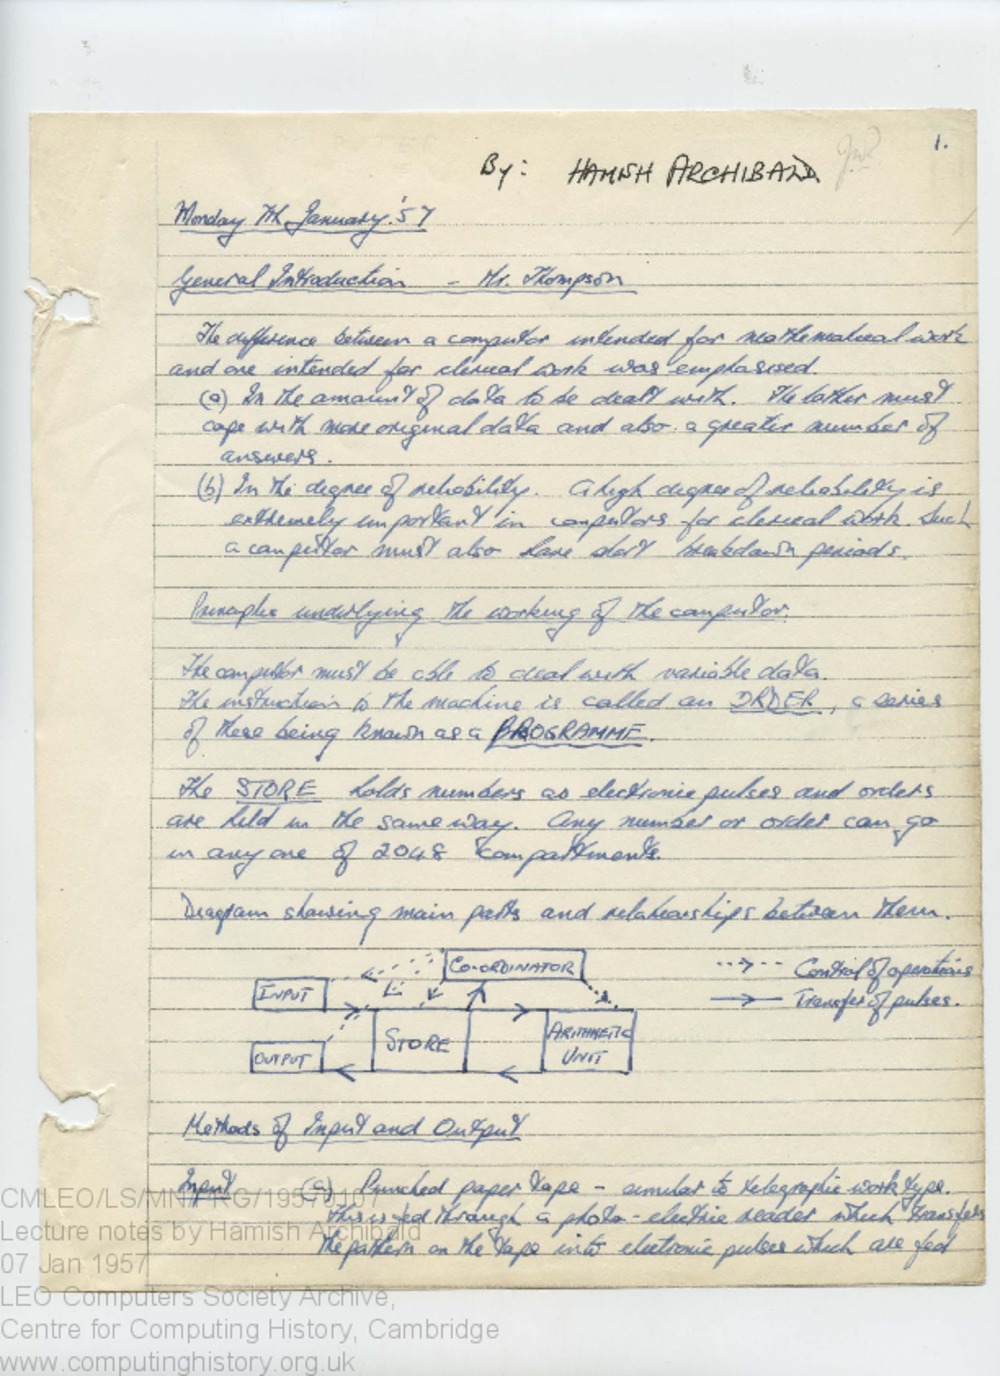 1.
By: HAMISH ARCHIBALD
Monday 7th January '57
General Introduction - Mr. Thompson
The difference between a computor intended for mathematical work
and one intended for clerical work was emphasised.
(a) In the amount of data to be dealt with. The latter must
cope with more original data and also a greater number of
answers.
(b) In the degree of reliability. A high degree of reliability is
extremely important in computors for clerical work. Such
a computor must also have short breakdown periods.
Principles underlying the working of the computor.
The computor must be able to deal with variable data.
The instruction to the machine is called an ORDER, a series
of these being known as a PROGRAMME.
The STORE holds numbers as electronic pulses and orders
are held in the same way. Any number or order can go
in any one of 2048 compartments.
Diagram showing main parts and relationships between them.
CO-ORDINATOR
INPUT
STORE
ARITHMETIC
UNIT
OUTPUT
Control of operations
Transfer of pulses.
Methods of Input and Output
Input (a) Punched paper tape - similar to telegraphic work type.
This is fed through a photo-electric reader which transfers
the pattern on the tape into electronic pulses which are fed
CMLEO/LS/MN/PRG/19570107
Lecture notes by Hamish Archibald
07 Jan 1957
LEO Computers Society Archive,
Centre for Computing History, Cambridge
www.computinghistory.org.uk